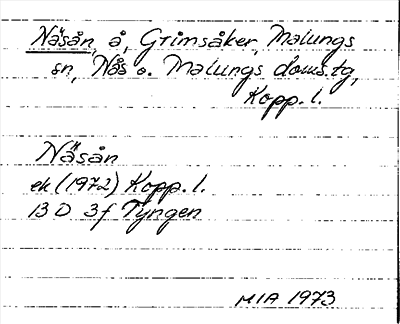 Näsån, å, Grimsåker, Malungs
sn, Nås o. Malungs doms.tg,
Kopp. l.
Näsån
ek (1972) Kopp. l.
13 D 3f Tyngen
MIA 1973